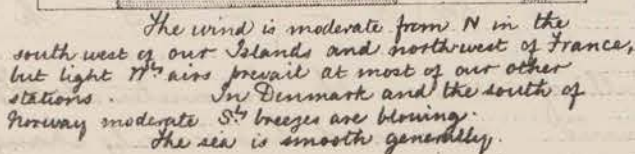 The wind is moderate from N in the
south west of our Islands and northwest of France,
but light Nly airs prevail at most of our other
stations. In Denmark and the south of
Norway moderate Sly breezes are blowing.
The sea is smooth generally.